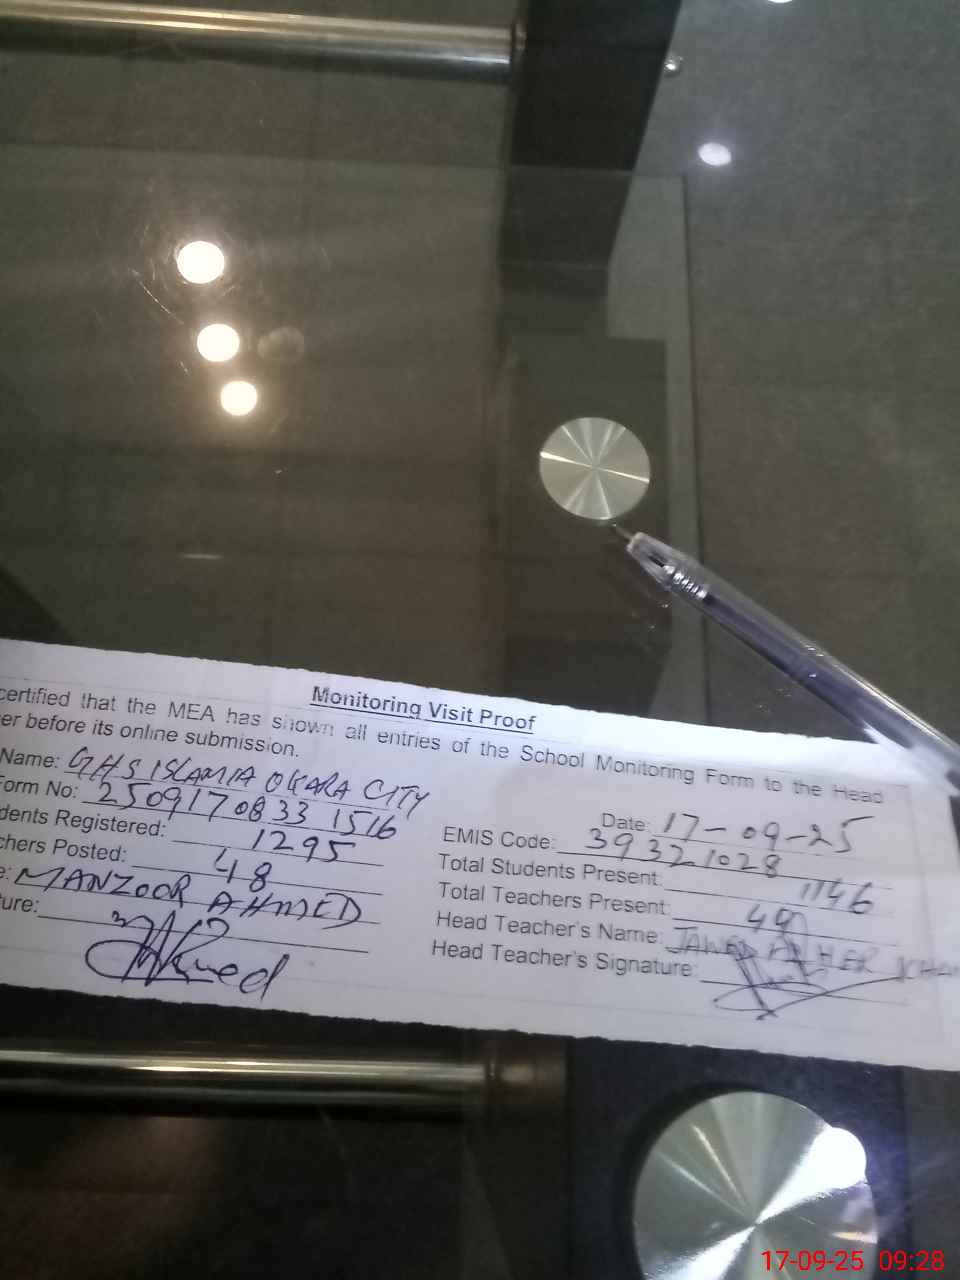 Monitoring Visit Proof
certified that the MEA has shown all entries of the School Monitoring Form to the Head
er before its online submission.
Name: GHS ISLAMIA OKARA CITY
Date: 17-09-25
Form No: 2509170833 1516
EMIS Code: 39321028
dents Registered: 1295
Total Students Present: 1146
chers Posted: 48
Total Teachers Present:
e: MANZOOR AHMED
Head Teacher's Name:
ture:
Head Teacher's Signature:
17-09-25 09:28